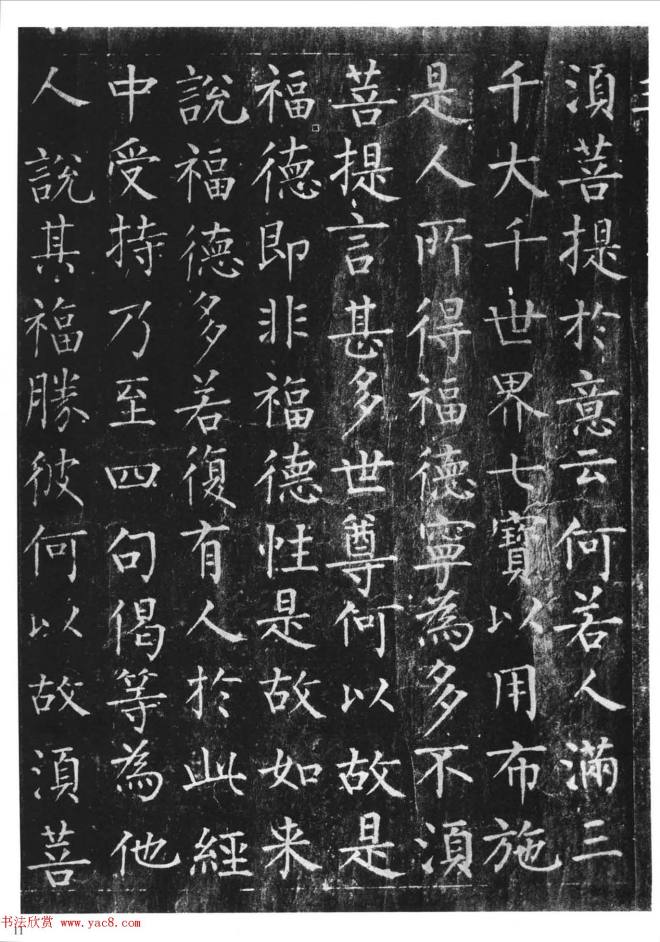 須菩提於意云何若人滿三
千大千世界七寶以用布施
是人所得福德寧為多不須
菩提言甚多世尊何以故是
福德即非福德性是故如来
說福德多若復有人於此經
中受持乃至四句偈等為他
人說其福勝彼何以故須菩
书法欣赏 www.yac8.com
11